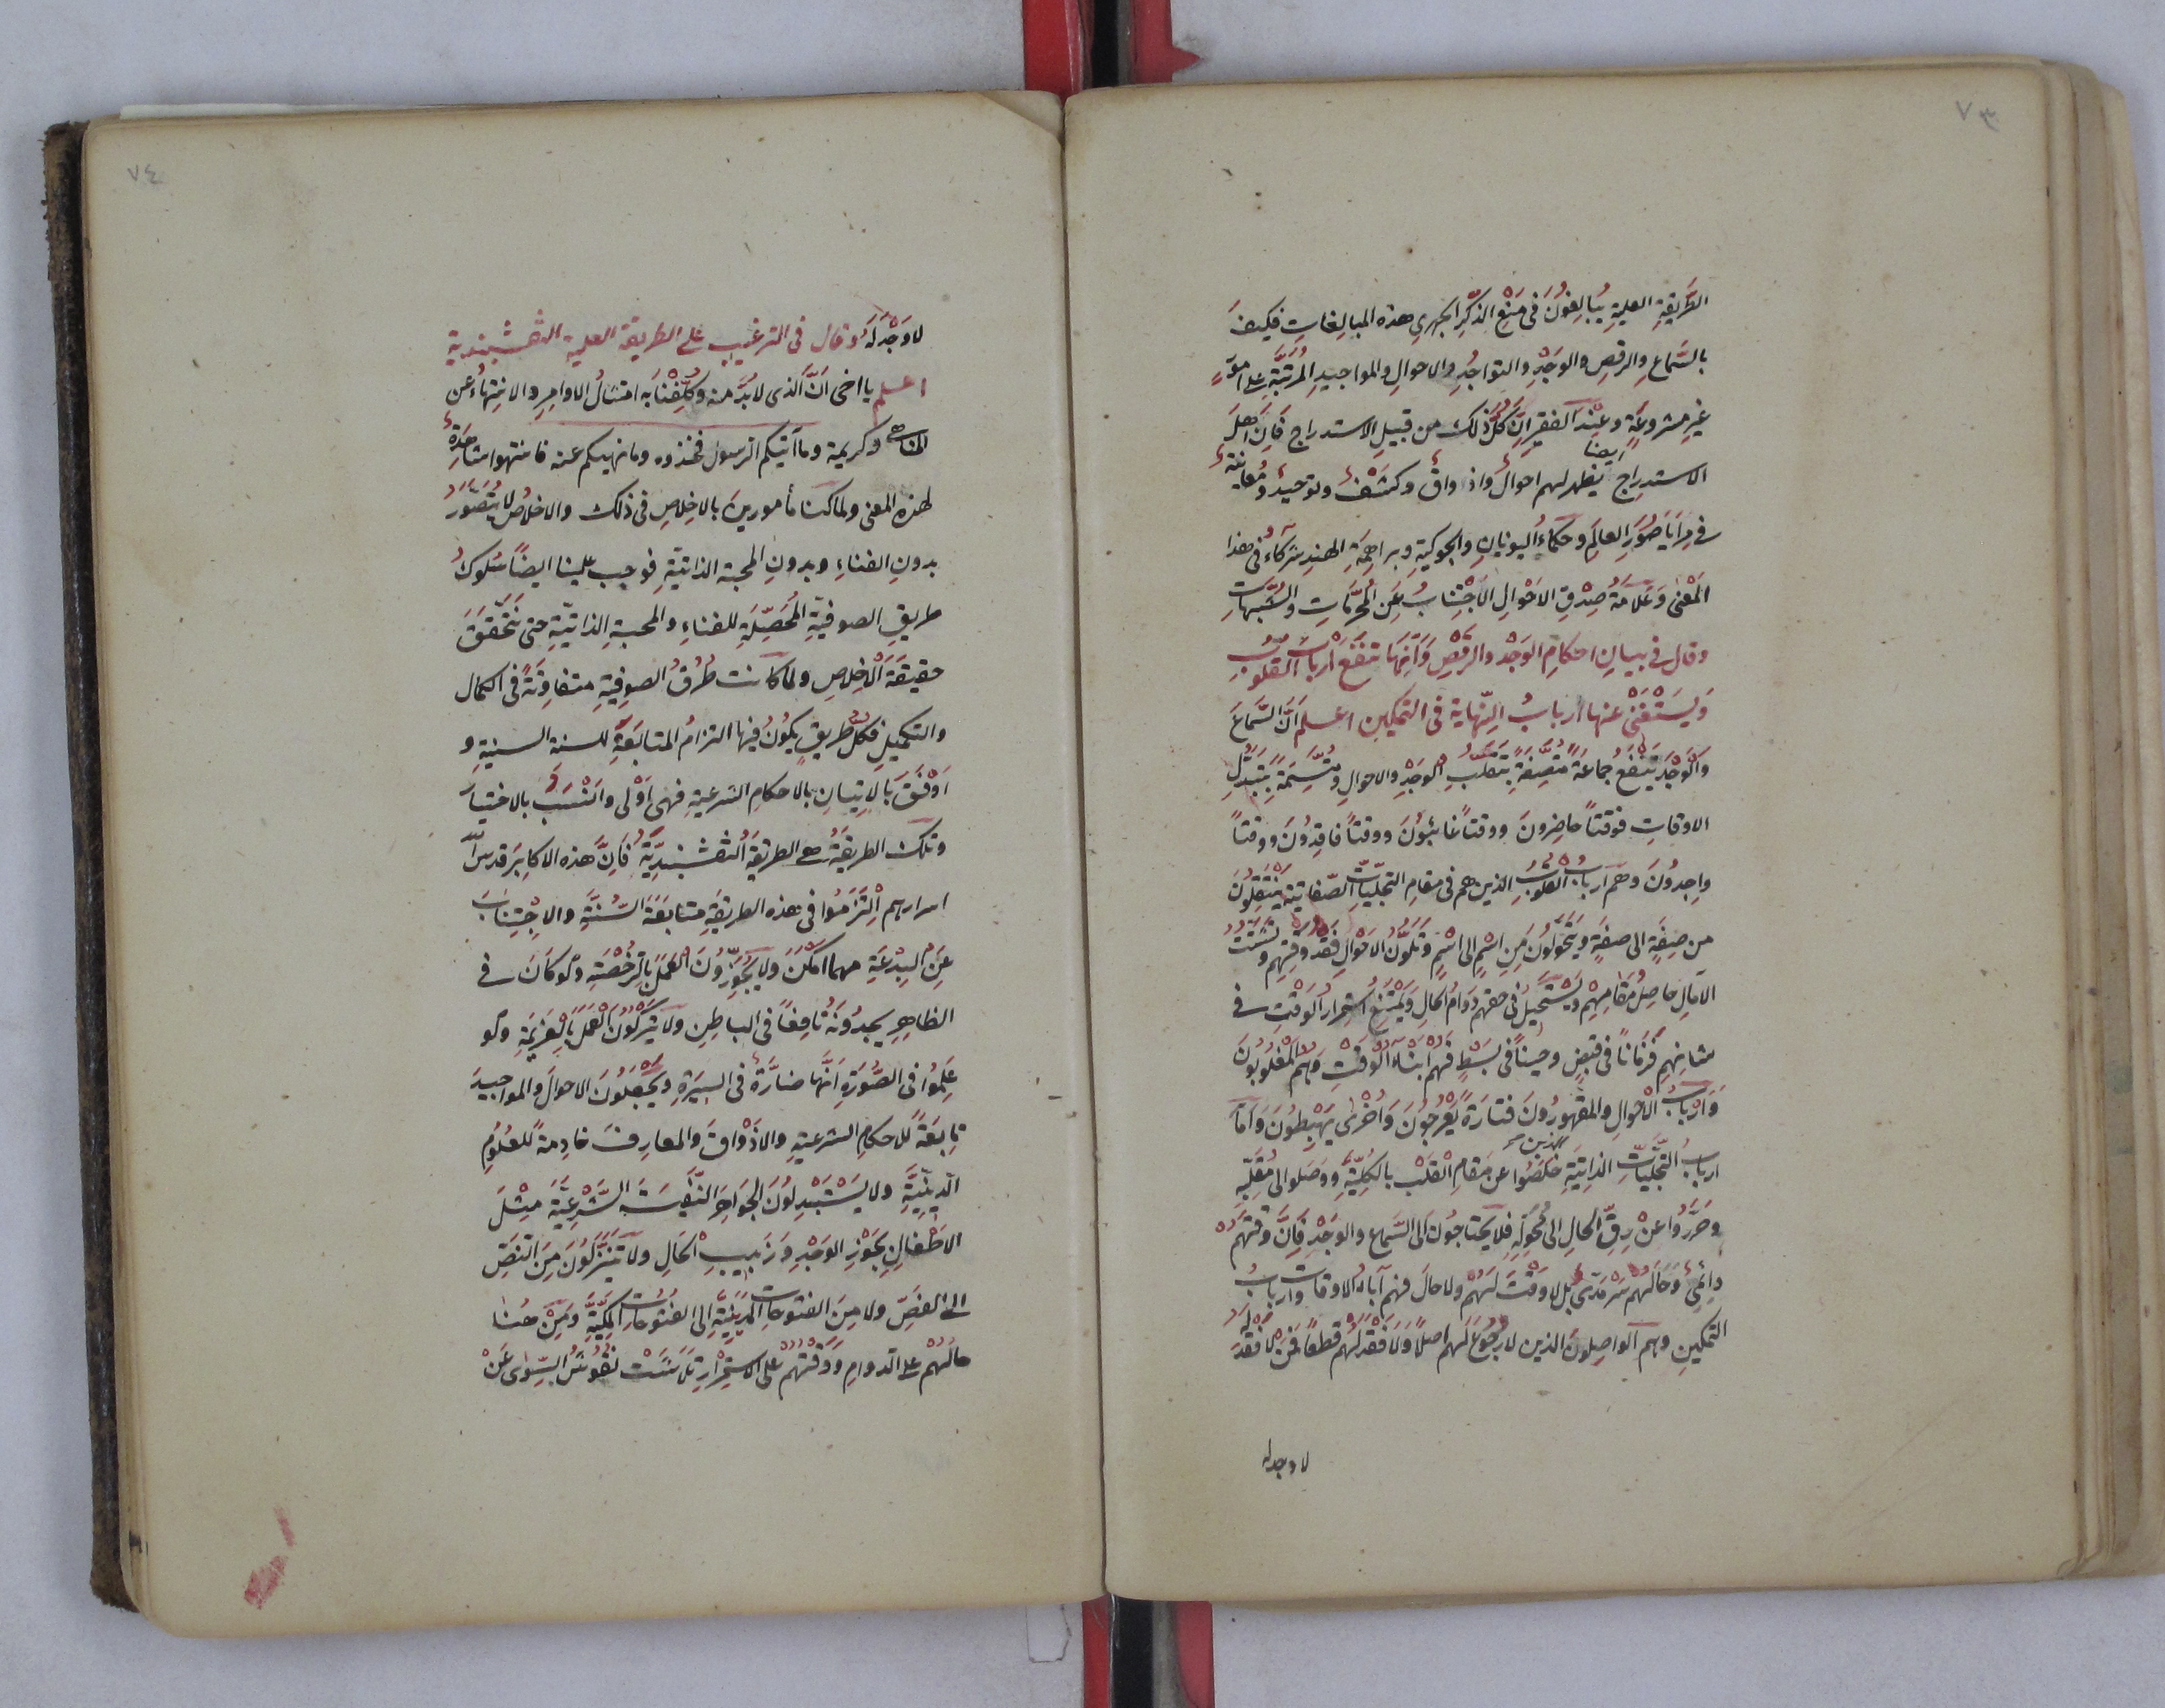 ٧٣
الطَّرِيقَةِ العليةِ يُبَالِغُونَ فى مَنْعِ الذِّكْرِ الجهرىِ هذه المبالغاتِ فكيفَ
بالسَّماعِ والرقصِ والوَجْدِ والتواجُدِ والاحوالِ والمواجيدِ المُرَتَّبَةِ على امورٍ
غيرِ مشروعَةٍ وعِنْدَ الفقيرِ اِنَّ كُلَّ ذلك من قبيلِ الاستدراجِ فَاِنَّ اَهلَ
الاستدراجِ ايضا يظهر لهم احوالٌ واذواقٌ وكشفٌ وتوحيدٌ ومُعاينةٌ
فى مِرَايَا صُوَرِ العالَمِ وحكماءُ اليونانِ والجوكيةِ وبراهمَةِ الهندِ شركاءُ فى هذا
المَعْنٰى وعَلامَةُ صِدْقِ الاَحْوَالِ الاَجْتِنَابُ عَنِ المُحَرَّمَاتِ والشُّبُهَاتِ
وقال فى بيانِ احكامِ الوَجْدِ والرَّقْصِ وَاَنَّهَا تنفَعُ اَرْبابَ القلوبِ
وَيَسْتَغْنى عنها اَربابُ النّهاية فى التمكين اعلم اَنَّ السَّماعَ
والوَجْدَ يَنْفَعُ جماعَةً مُتَّصِفَةً بِتَقَلُّبِ الوجْدِ والاحوالِ ومُتَّسِمَةً بتَبَدُّلِ
الاوقاتِ فوقتاً حاضِرونَ ووقتاً غائبُونَ ووقتاً فاقِدُونَ ووقتاً
واجِدُونَ وهم اَربابُ القلوبِ الذين هم فى مقامِ التجلّياتِ الصّفاتيةِ يَنْتَقِلُونَ
من صِفَةٍ الى صفةٍ ويَتَحَوَّلُونَ مِنِ اسْمٍ الى اسْمٍ وتَلَوُّنُ الاَحْوَالِ نَقْدُ وَقْتِهِمْ وتَشَتُّتُ
الآمالِ حاصِلُ مَقامِهِمْ ويَسْتَحِيلُ فى حقّهم دَوَامُ الحالِ وَيَمْتَنِعُ اسْتِمْرارُ الوَقْتِ فى
شانِهِم فَزَمَاناً فى قبضٍ وحيناً فى بَسْطٍ فَهُم اَبْنَاءُ الوَقْتِ وَهُمُ المَغْلُوبُونَ
وَاَرْبابُ الاحْوَالِ والمَقْهُورُونَ فتارَةً يَعْرُجُونَ وَاُخْرٰى يَهْبِطُونَ وَاَمَّا
اربابُ التجلّيّاتِ الذاتِيَةِ الذين هم خَلَصُوا عن مَقامِ القَلْبِ بالكُلِيَّةِ ووصَلوا الى مُقَلِّبِهِ
وحُرِّرُوا عَنْ رِقِّ الحالِ الى مُحَوِّلِهِ فلا يَحْتاجُونَ الى السَّماعِ والوَجْدِ فَاِنَّ وَقْتَهُمْ
دائِمىٌّ وَحَالَهُم سَرْمَدىٌّ بَل لاوَقْتَ لَهُمْ ولاحالَ فهم آباءُ الاوقات واربابُ
التمكينِ وهم الواصِلونَ الذين لارُجُوعَ لهم اصلاً وَلاَفَقْدَ لَهُم قطعاً فَمَنْ لاَفَقْدَ له
لا وجد له
٧٤
لاوَجْدَ لَهُ وقال فى الترغيب على الطريقة العلية النقشبندية
اعلم يا اخى اَنَّ الّذى لابُدَّ منه وكُلِّفْنَا به امتثالُ الاوامِرِ والانتِهاءُ عن
المناهى وكريمة وما آتيكم الرسول فخذوه وما نهيكم عنه فانتهوا شاهدَةٌ
لهذه المعنى ولما كنا مأمورينَ بالاخلاصِ فى ذلك والاخلاصُ لا يُتَصَوَّرُ
بدونِ الفناءِ وبدونِ المحبة الذاتيّةِ فوجب علينا ايضاً سُلوكُ
طريقِ الصوفيّةِ المُحَصِّلَةِ للفناءِ والمحبةِ الذاتيّةِ حتى نَتَحَقَّقَ
حقيقَةَ الاَخْلاصِ ولما كانت طُرُقُ الصوفِيّةِ متفاوِتَةً فى الكمال
والتكميلِ فكلُّ طريقٍ يكُونُ فيها التزامُ المتابَعَةِ للسنةِ السنيةِ و
اَوْفَقَ بالاتيانِ بالاحكامِ الشرعيةِ فهى اَوْلى واَنْسَبُ بالاختيارِ
وتلك الطريقَةُ هى الطريقَةُ النقشبنديّةُ فَاِنَّ هذه الاكابِرَ قدس اللّه
اسرارهم اِلْتَزَمُوا فى هذه الطريقَةِ متابَعَةَ السُّنَّةِ والاجْتِنَابَ
عَنِ البِدْعَةِ مهما امكَنَ ولا يُجَوِّزُونَ العَمَلَ بالرُّخْصَةِ ولو كانَ فى
الظاهِرِ يجدُونَهُ نافِعاً فى الباطِنِ ولا يَتْرُكُونَ العَمَلَ بالعزيمَةِ ولو
عَلِمُوا فى الصُّورَةِ اَنَّها ضارَّةٌ فى السيرةِ ويَجْعَلُونَ الاحوالَ والمواجيدَ
تابعَةً للاحكامِ الشرعيةِ والاذْوَاقَ والمعارفَ خادِمةً للعُلُومِ
الدِّينِيَّةِ ولا يَسْتَبْدِلُونَ الجَوَاهِرَ النَّفِيسَةَ الشَّرْعِيَّةَ مِثْلَ
الاَطْفَالِ بجَوْزِ الوَجْدِ وَزَبيبِ الحَالِ ولا يَتَنَزَّلُونَ مِنَ النَّصِّ
الى الفَصِّ ولا مِنَ الفتوحاتِ المَدَنِيَّةِ الى الفُتُوحاتِ المَكِّيَّةِ وَمِنْ هُنا
حالُهُمْ على الدوامِ وَوَقْتُهُمْ على الاستمْرارِ تَلاشَتْ نُقُوشُ السِّوٰى عَنْ